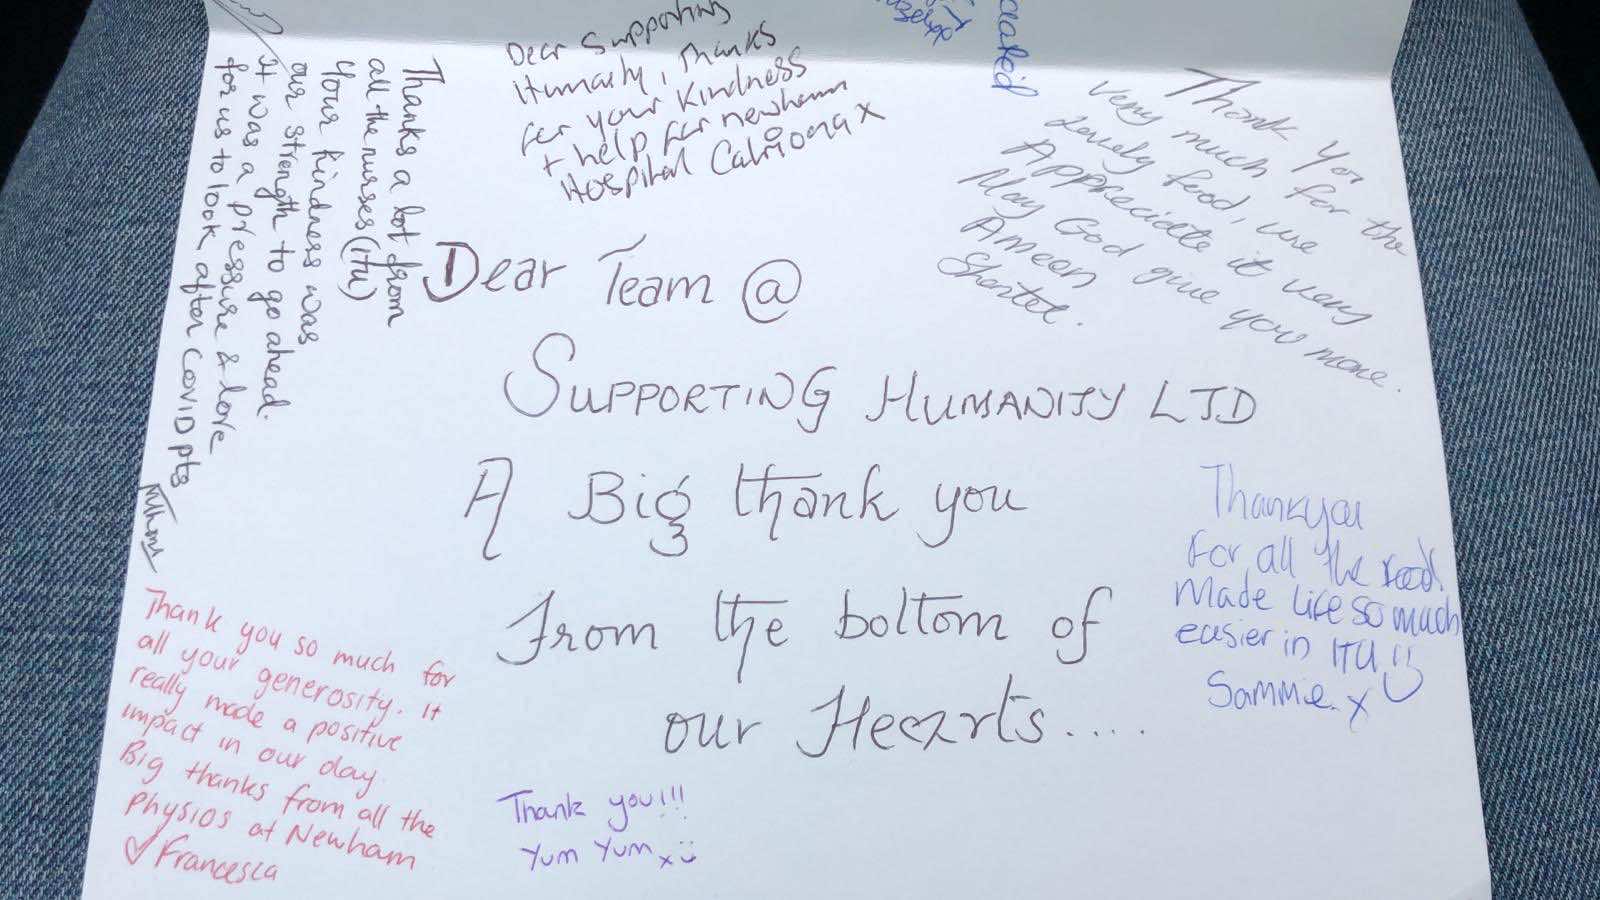 Thanks a lot from
all the nurses (itu)
Your kindness was
our strength to go ahead.
It was a pressure & love
for us to look after COVID pts
Dear Supporting
Humanity, Thanks
for your kindness
+ help for newham
Hospital Catriona x
Thank you
very much for the
lovely food, we
Appreciate it very
May God give you more.
Ameen
Dear Team @
SUPPORTING HUMANITY LTD
A Big thank you
From the bottom of
our Hearts....
Thankyou
for all the food.
Made life so much
easier in ITU!!
Sammie. x
Thank you so much for
all your generosity. It
really made a positive
impact in our day.
Big thanks from all the
Physios at Newham
♡ Francesca
Thank you!!!
Yum Yum x